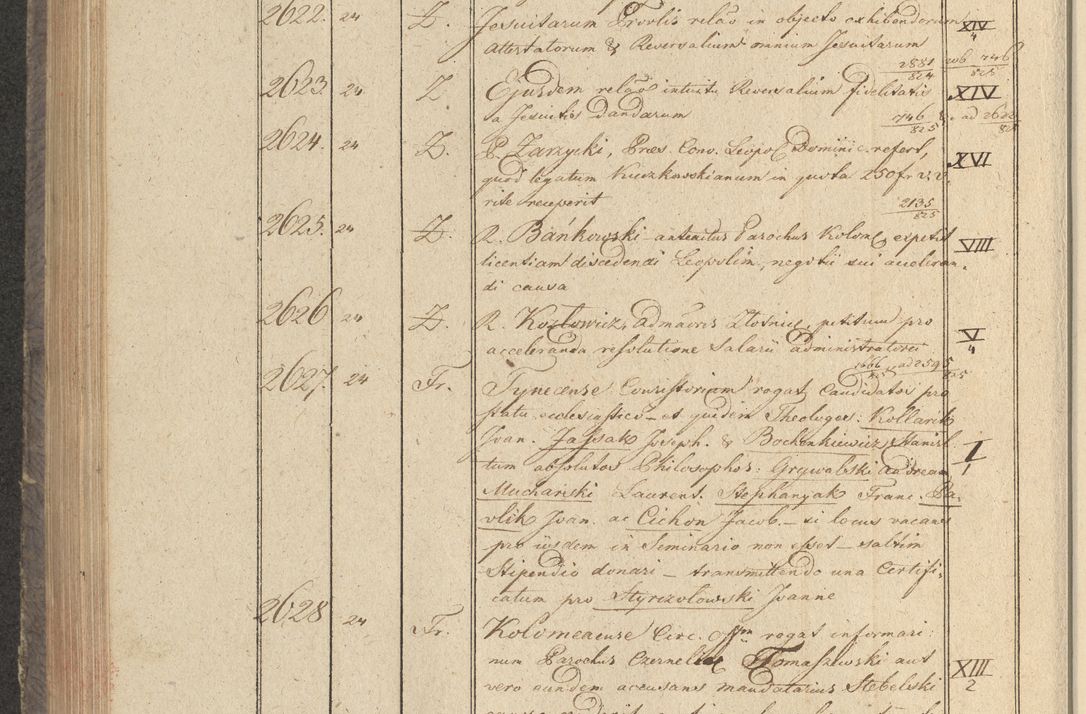 2622. 24 Z. Jesuitarum Provlis relāo in objecto exhibendorum XIV
attestatorum & Reversalium omnium Jesuitarum 4
2881/824 746/825
2623 24 Z Ejusdem relāo intuitu Reversalium fidelitatis XIV
a Jesuitis dandarum 746/825 ad 2622/825
2624. 24 Z. P. Zarzycki, Præs. Conv. Leopol Dominic. refert, XVI
quod legatum Kuczkowskianum in quota 250 fr
rite receperit 2135/825
2625. 24 Z. R. Báńkowski antenitus Parochus Kolom expetit VIII
licentiam discedendi Leopolim, negotii sui acceleran-
di causa
2626 24 Z. R. Kozłowicz, Admāoris Złotnic, petitum pro V
acceleranda resolutione Salarii administratorii 4
1666 ad 2595/825
2627. 24 Fr. Tynecense Consistorium rogat Candidatos pro
statu ecclesiastico – et quidem Theologos: Kollarik
Joan. Jaszak Joseph. & Bochenkiewicz Stanisl. I
tum absolutos Philosophos: Grywalski Andream 1
Muchański Laurent. Stephanyak Franc. Pa-
vlik Joan. ac Cichon Jacob. – si locus vacans
pro iisdem in Seminario non esset – saltim
Stipendio donari – transmittendo una Certifi-
catum pro Styrzolowski Joanne
2628 24 Fr. Kolomeaense Circ. Offm rogat informari:
num Parochus Czernelic Tomaszewski aut XIII
vero eundem accusans mandatarius Stebelski 2